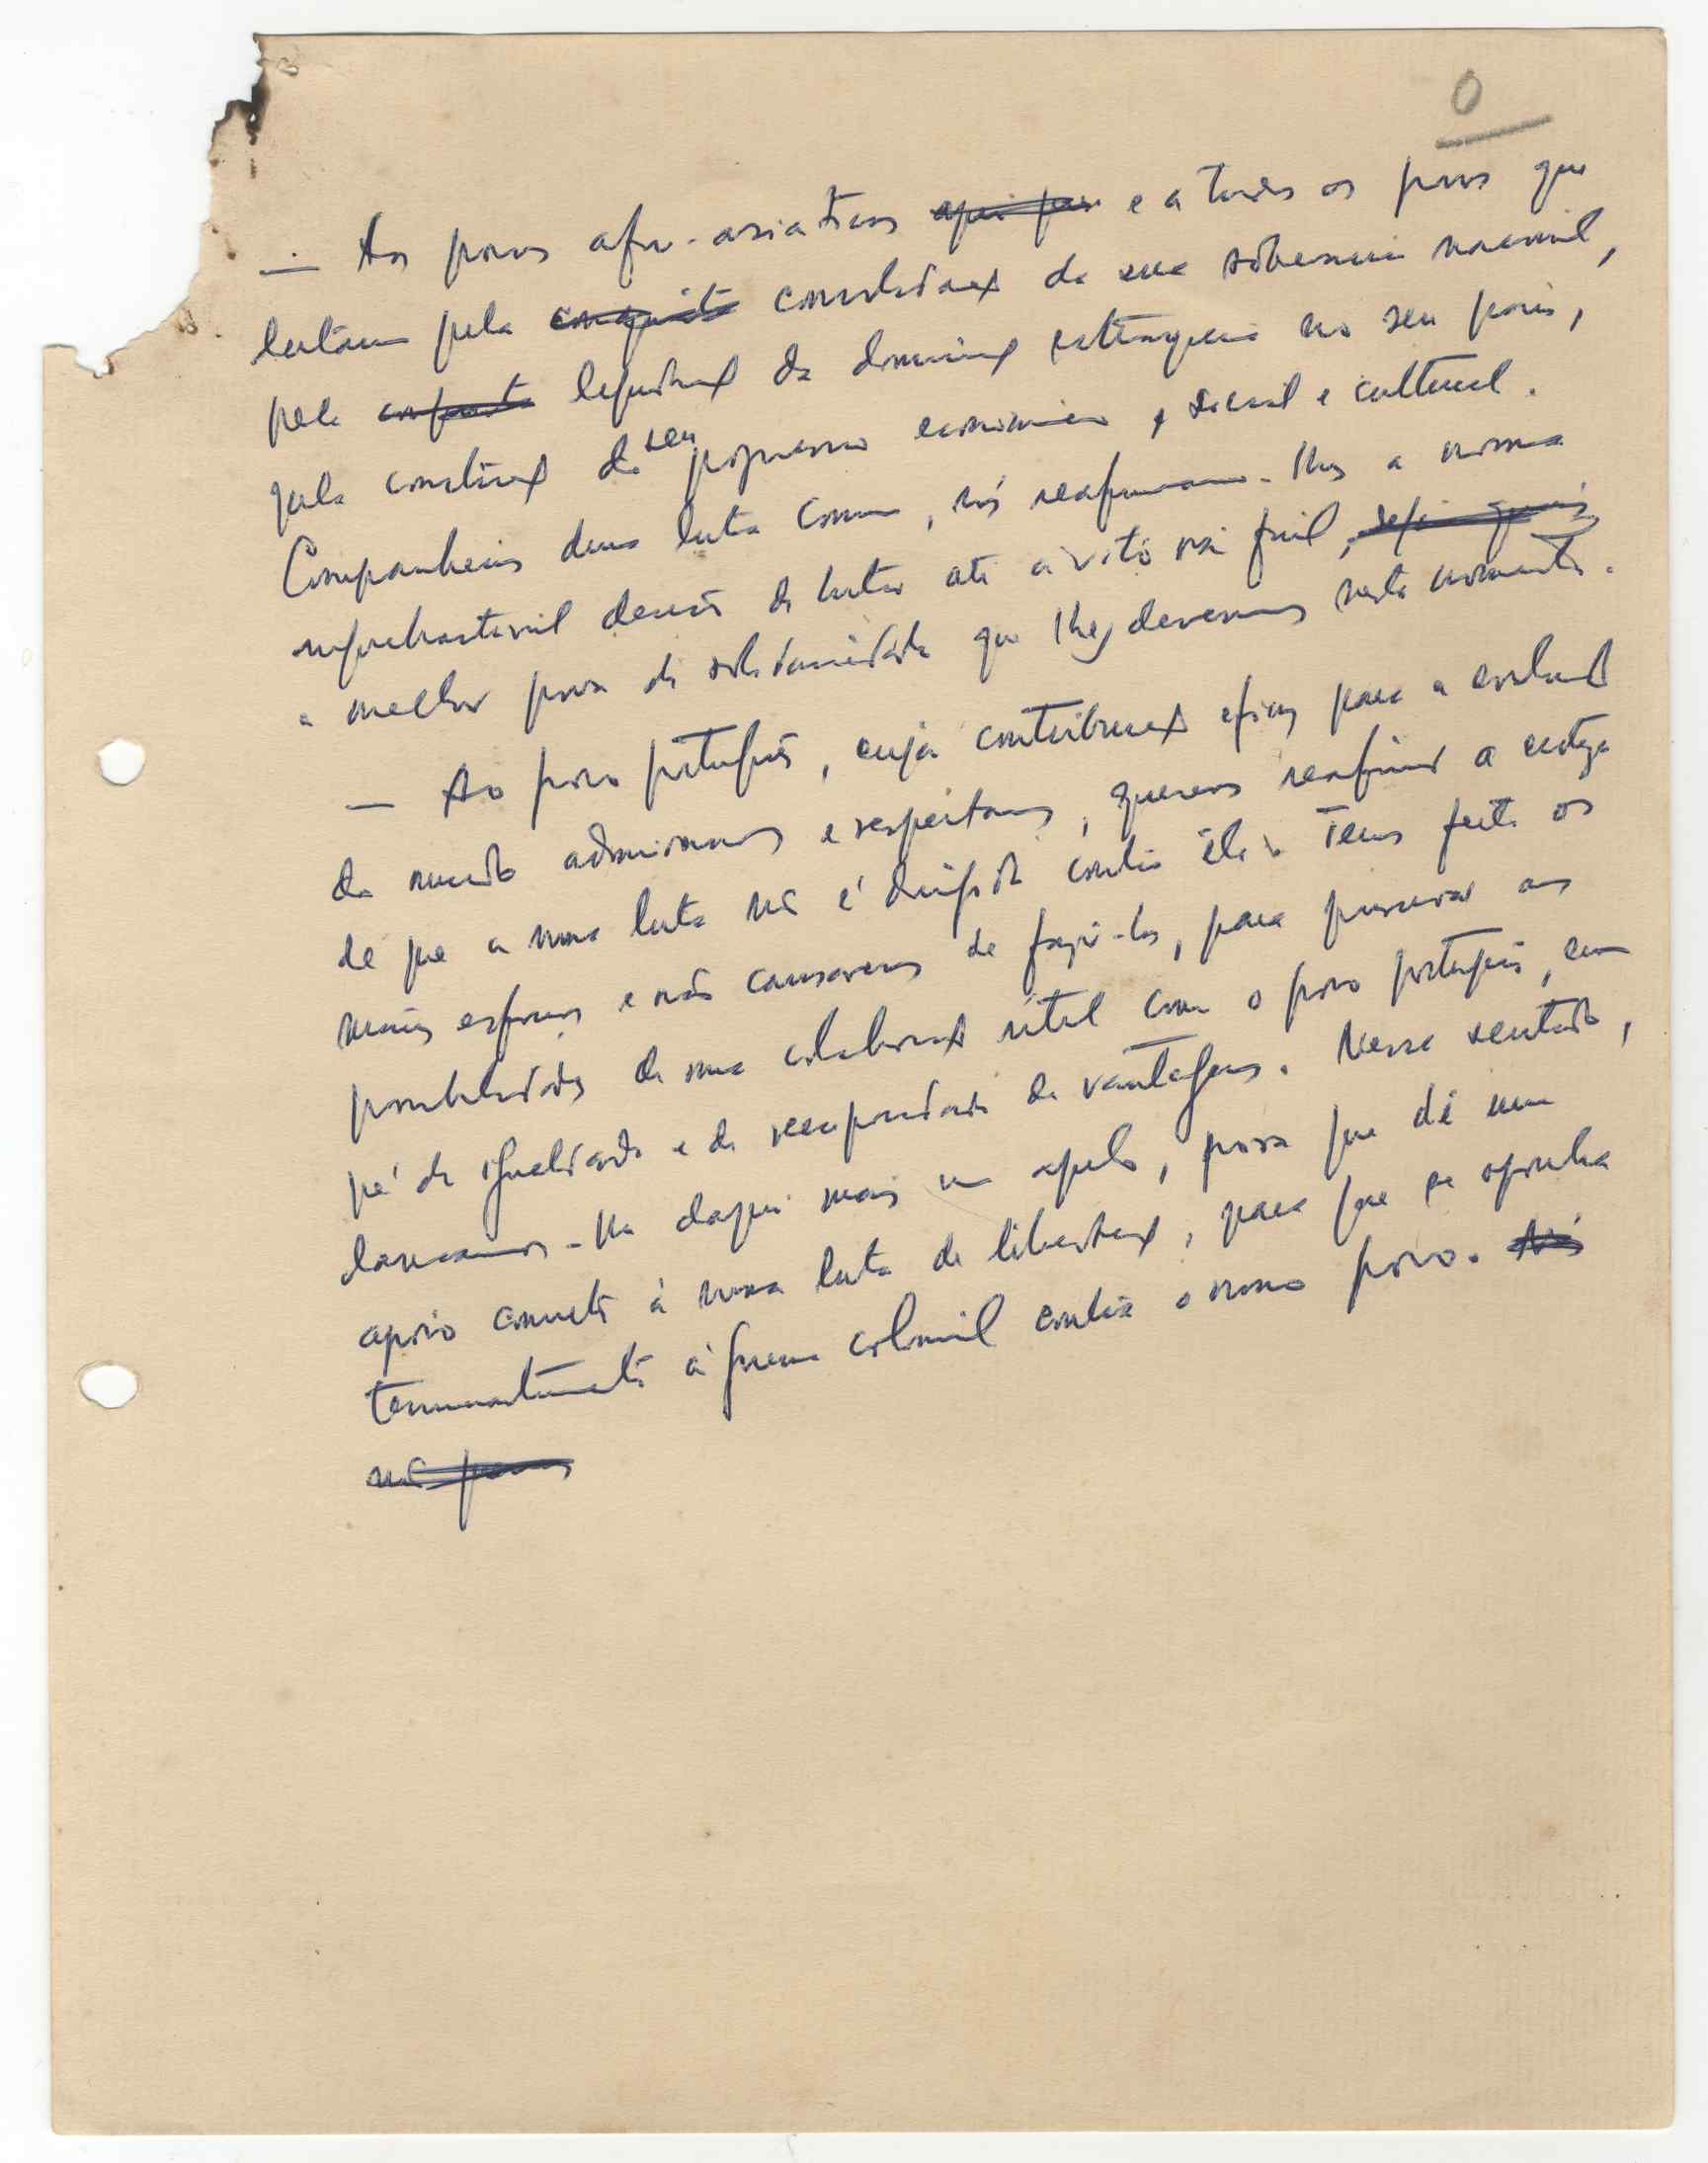 0
— Aos povos afro-asiáticos e a todos os povos que
lutam pela conquista consolidação da sua soberania nacional,
pela conquista liquidação da dominação estrangeira no seu país,
pela construção do seu progresso económico, social e cultural.
Companheiros duma luta comum, nós reafirmamos-lhes a nossa
inquebrantável decisão de lutar até à vitória final,
a melhor prova de solidariedade que lhes devemos neste momento.
— Ao povo português, cuja contribuição eficaz para a evolução
do mundo admiramos e respeitamos, queremos reafirmar a certeza
de que a nossa luta não é dirigida contra êle. Temos feito os
mais esforços e não cansaremos de fazê-los, para preservar as
possibilidades de uma colaboração útil com o povo português, em
pé de igualdade e de reciprocidade de vantagens. Nesse sentido,
lançamos-lhe daqui mais um apelo, para que dê um
apoio concreto à nossa luta de libertação, para que se oponha
terminantemente à guerra colonial contra o nosso povo. Nós
não